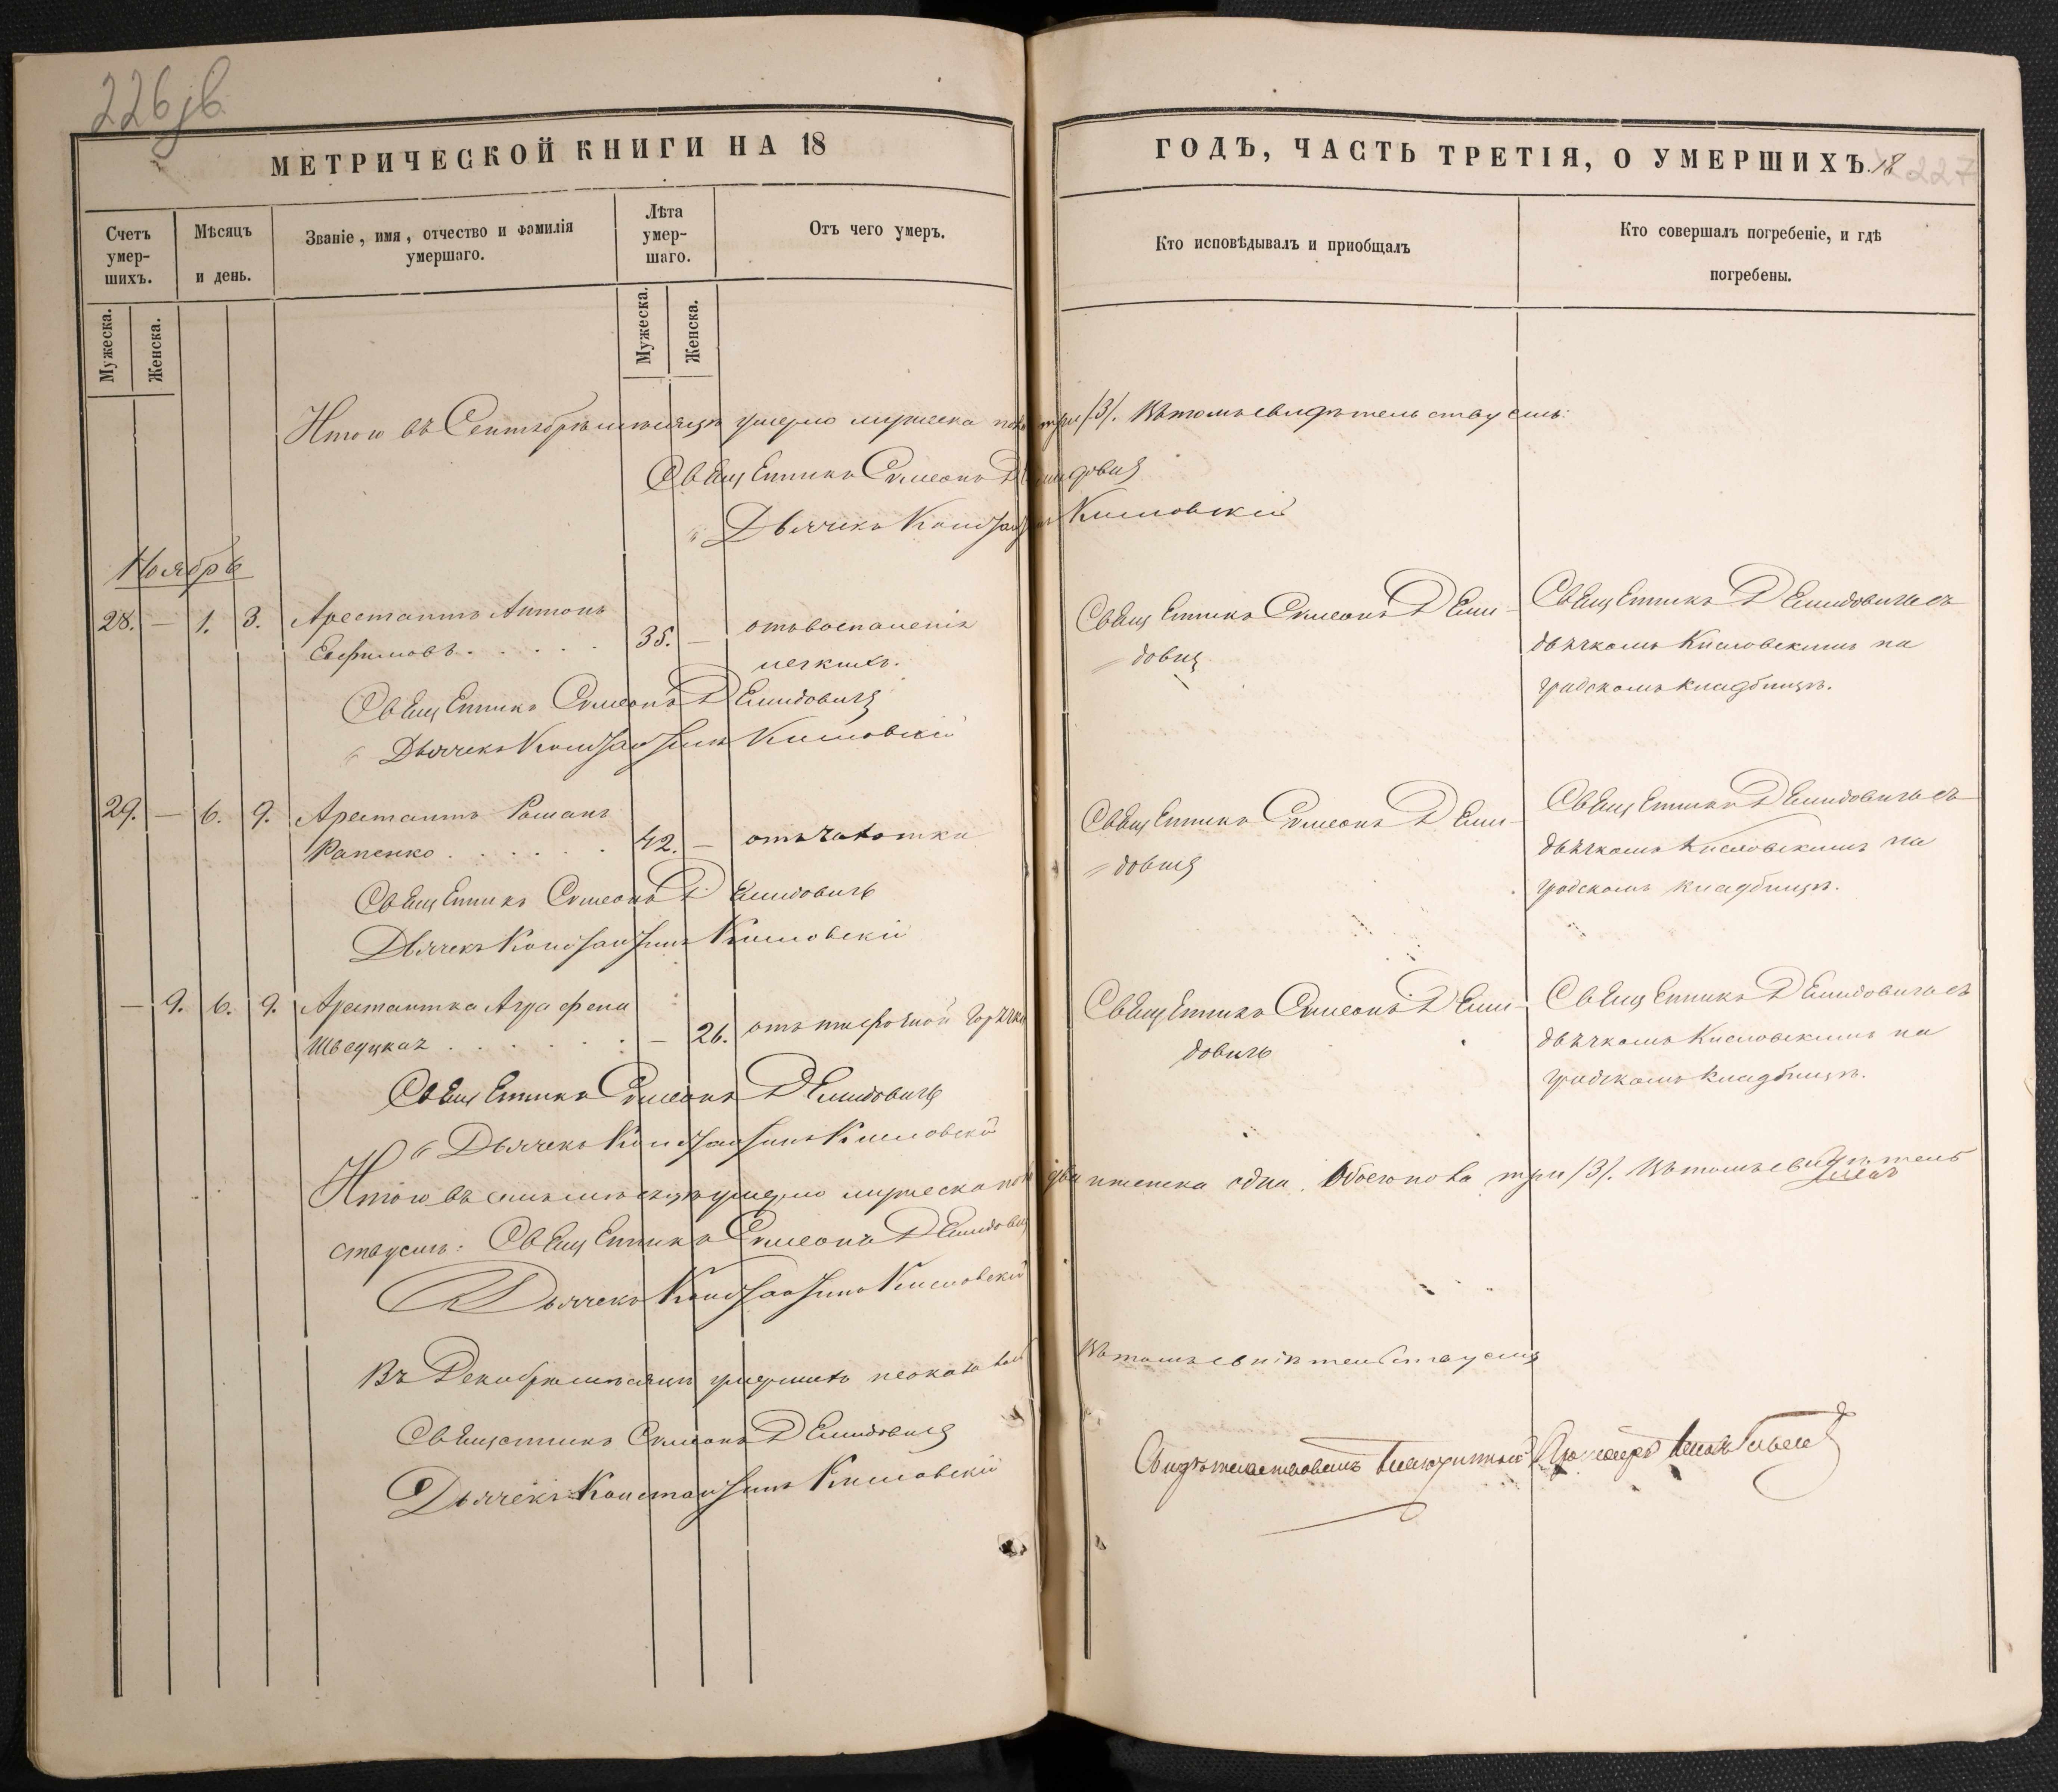 226 зв
МЕТРИЧЕСКОЙ КНИГИ НА 18
Счетъ умер-шихъ.
Мѣсяцъ и день.
Званіе, имя, отчество и фамилія умершаго.
Лѣта умер-шаго.
Отъ чего умеръ.
Мужеска.
Женска.
Мужеска.
Женска.
ГОДЪ, ЧАСТЬ ТРЕТІЯ, О УМЕРШИХЪ.
227
Кто исповѣдывалъ и приобщалъ
Кто совершалъ погребеніе, и гдѣ погребены.
Итого въ Сентябрѣ мѣсяцѣ умерло мужеска пола три /3/. Въ томъ свидѣтельствуемъ:
Священникъ Симеонъ Демидовичъ
Дьячекъ Константинъ Кисловскій
Ноябрь
28. — 1. 3. Арестантъ Антонъ
Евфимовъ . . . . . 35. —
отъ воспаленія
легкихъ.
Священникъ Симеонъ Деми-
довичъ
Священникъ Демидовичъ съ
дьячкомъ Кисловскимъ на
градскомъ кладбищѣ.
Священникъ Симеонъ Демидовичъ
Дьячекъ Константинъ Кисловскій
29. — 6. 9. Арестантъ Романъ
Рапенко . . . . . . 42. — отъ чахотки
Священникъ Симеонъ Деми-
довичъ
Священникъ Демидовичъ съ
дьячкомъ Кисловскимъ на
градскомъ кладбищѣ.
Священникъ Симеонъ Демидовичъ
Дьячекъ Константинъ Кисловскій
— 9. 6. 9. Арестантка Аграфена
Шведцкая . . . . . . — 26. отъ тифозной горячки
Священникъ Симеонъ Деми-
довичъ
Священникъ Демидовичъ съ
дьячкомъ Кисловскимъ на
градскомъ кладбищѣ.
Священникъ Симеонъ Демидовичъ
Дьячекъ Константинъ Кисловскій
Итого въ семъ мѣсяцѣ умерло мужеска пола два женска одна. Обоего пола три /3/. Въ томъ свидѣтель
ствуемъ: Священникъ Симеонъ Демидовичъ
Дьячекъ Константинъ Кисловскій
Въ Декабрѣ мѣсяцѣ умершихъ неоказалось Въ томъ свидѣтельствуемъ
Священникъ Симеонъ Демидовичъ
Дьячекъ Константинъ Кисловскій
Свидѣтельствовалъ Благочинный